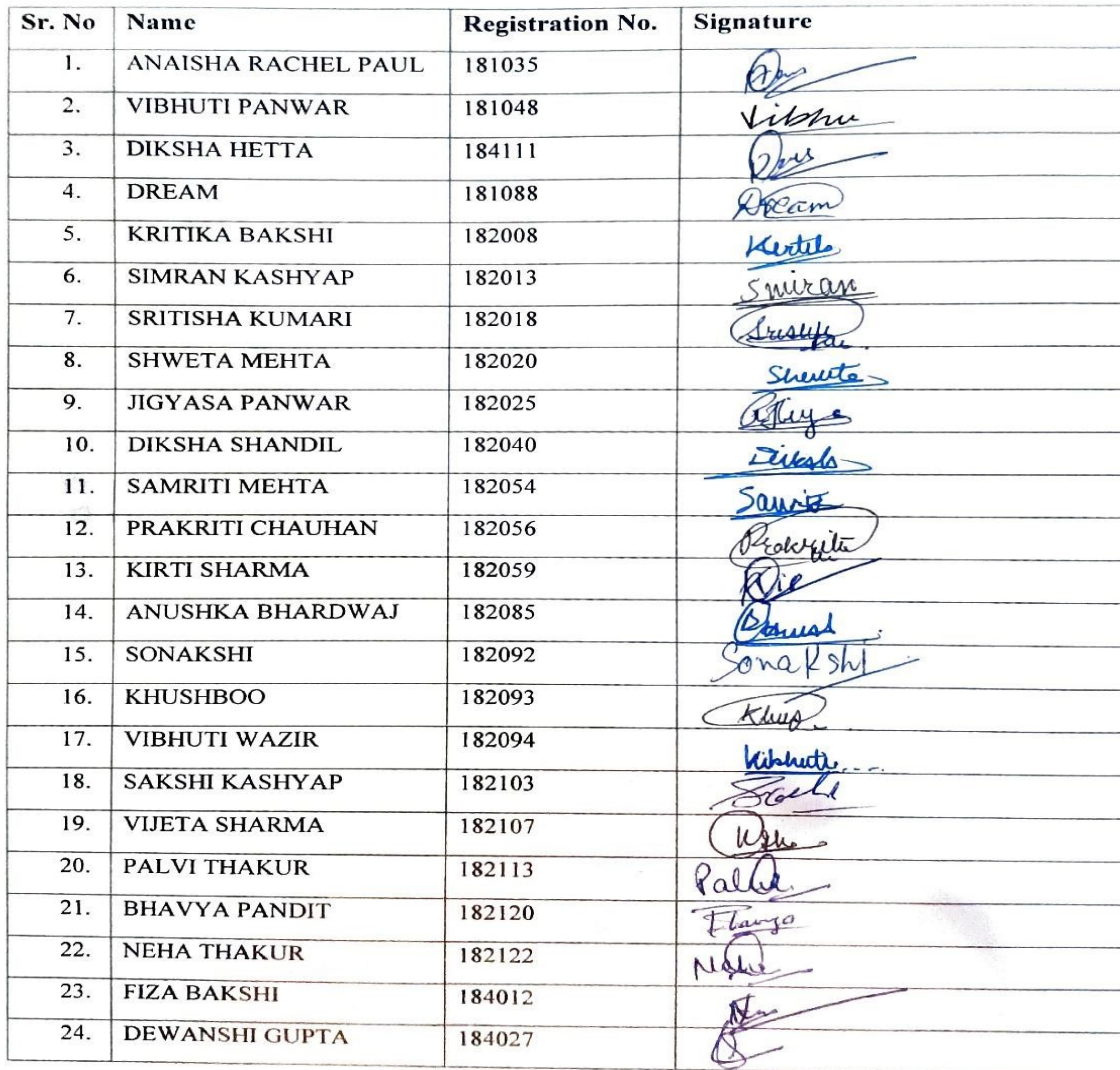 Sr. No Name Registration No. Signature
1. ANAISHA RACHEL PAUL 181035
2. VIBHUTI PANWAR 181048 Vibhu
3. DIKSHA HETTA 184111
4. DREAM 181088 Dream
5. KRITIKA BAKSHI 182008
6. SIMRAN KASHYAP 182013 Smiran
7. SRITISHA KUMARI 182018
8. SHWETA MEHTA 182020
9. JIGYASA PANWAR 182025
10. DIKSHA SHANDIL 182040
11. SAMRITI MEHTA 182054
12. PRAKRITI CHAUHAN 182056
13. KIRTI SHARMA 182059
14. ANUSHKA BHARDWAJ 182085
15. SONAKSHI 182092 Sonakshi
16. KHUSHBOO 182093
17. VIBHUTI WAZIR 182094 Vibhuti
18. SAKSHI KASHYAP 182103
19. VIJETA SHARMA 182107
20. PALVI THAKUR 182113
21. BHAVYA PANDIT 182120
22. NEHA THAKUR 182122
23. FIZA BAKSHI 184012
24. DEWANSHI GUPTA 184027